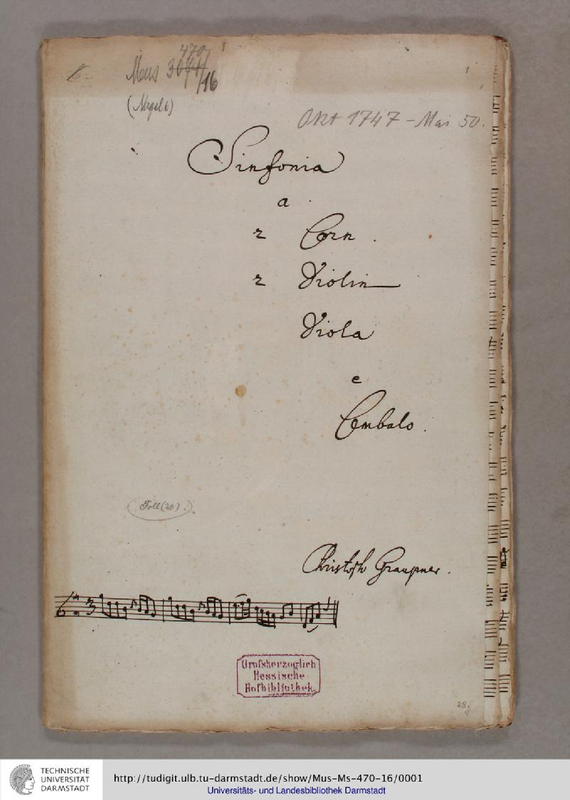 Mus 3
470
16
(Nagel 6)
Okt 1747 - Mai 50.
Sinfonia
a
2 Corn.
2 Violin
Viola
e
Cembalo.
Christoph Graupner.
Großherzoglich
Hessische
Hofbibliothek.
TECHNISCHE
UNIVERSITÄT
DARMSTADT
http://tudigit.ulb.tu-darmstadt.de/show/Mus-Ms-470-16/0001
Universitäts- und Landesbibliothek Darmstadt